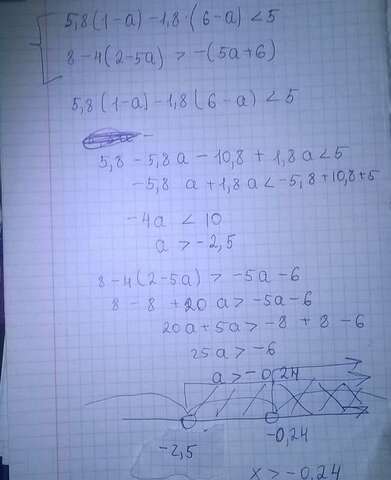 5,8(1-a)-1,8·(6-a)<5
8-4(2-5a)>-(5a+6)
5,8(1-a)-1,8(6-a)<5
5,8-5,8a-10,8+1,8a<5
-5,8a+1,8a<-5,8+10,8+5
-4a<10
a>-2,5
8-4(2-5a)>-5a-6
8-8+20a>-5a-6
20a+5a>-8+8-6
25a>-6
a>-0,24
-2,5 -0,24
x>-0,24